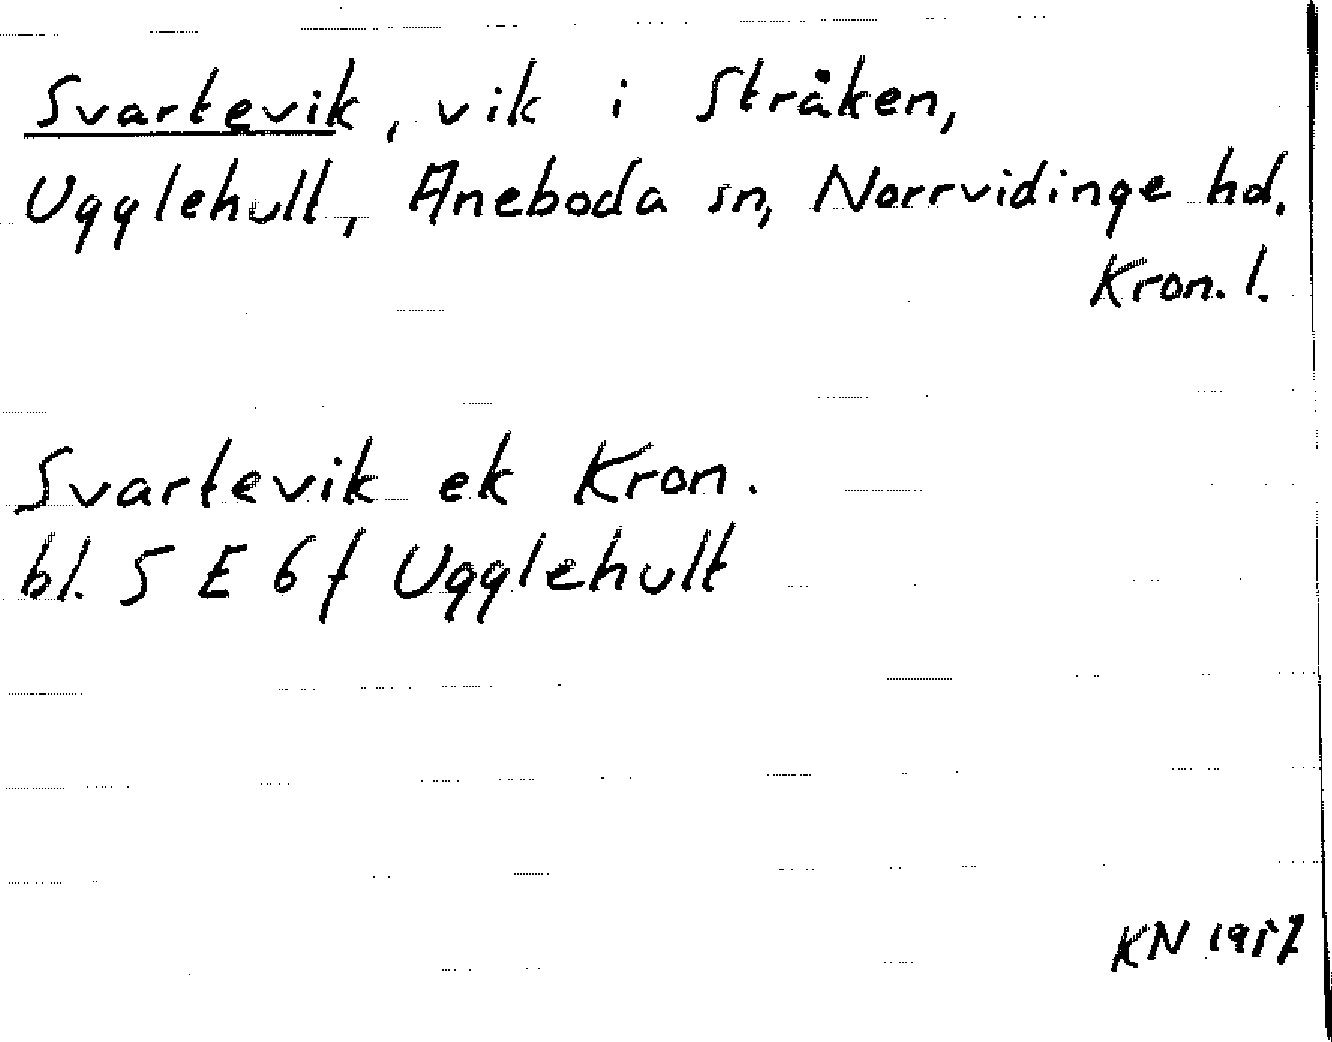 Svartevik, vik i Stråken,
Ugglehult, Aneboda sn, Norrvidinge hd.
Kron. l.
Svartevik ek Kron.
bl. 5 E 6 f Ugglehult
KN 1957